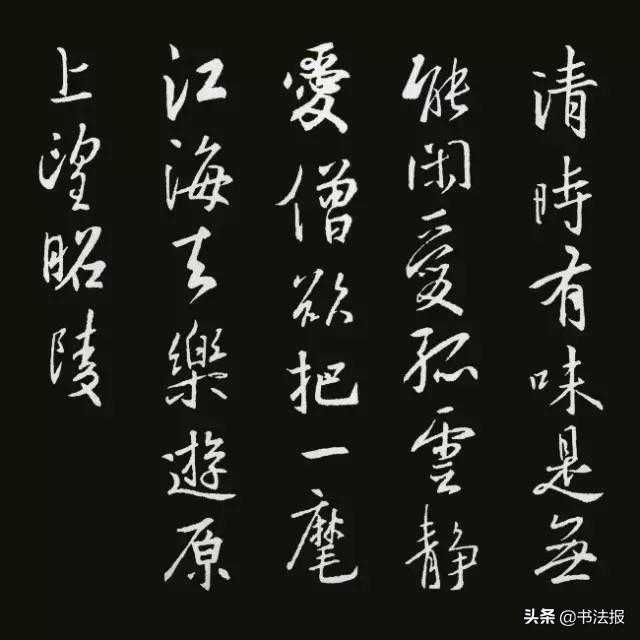 清時有味是無
能閑愛孤雲靜
愛僧欲把一麾
江海去樂遊原
上望昭陵
头条 @书法报